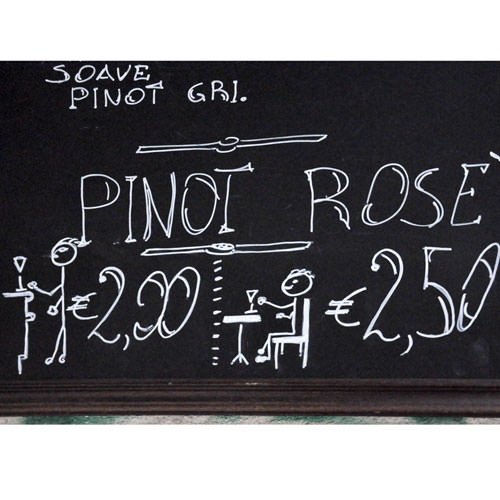 SOAVE
PINOT GRI.
PINOT ROSÈ
€2,00 €2,50